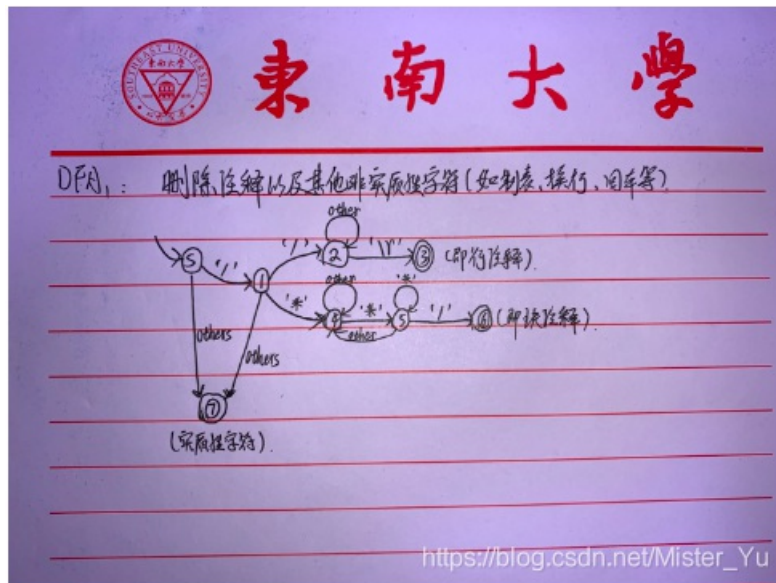 SOUTHEAST UNIVERSITY
東南大学
東南大學
DFA₁: 删除注释以及其他非实质性字符(如制表、换行、回车等)
other
S '/' 1 '/' 2 '\r' 3 (即行注释).
other '*'
'*' 4 '*' 5 '/' 6 (即块注释).
other
others
others
7
(实质性字符).
https://blog.csdn.net/Mister_Yu